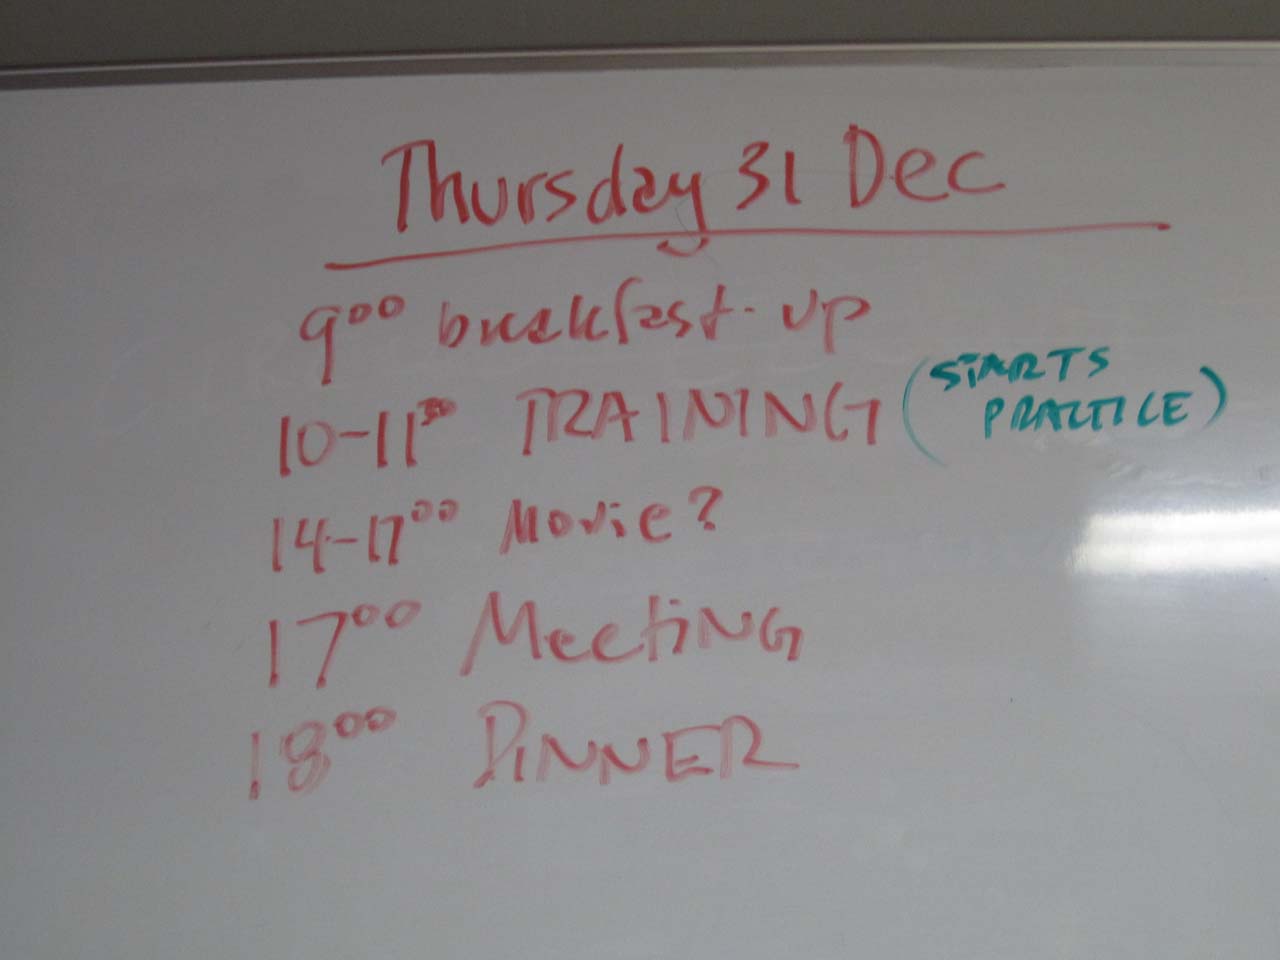 Thursday 31 Dec
9⁰⁰ breakfast-up
10-11³⁰ TRAINING (STARTS PRACTICE)
14-17⁰⁰ Movie?
17⁰⁰ MeetiNG
18⁰⁰ DINNER